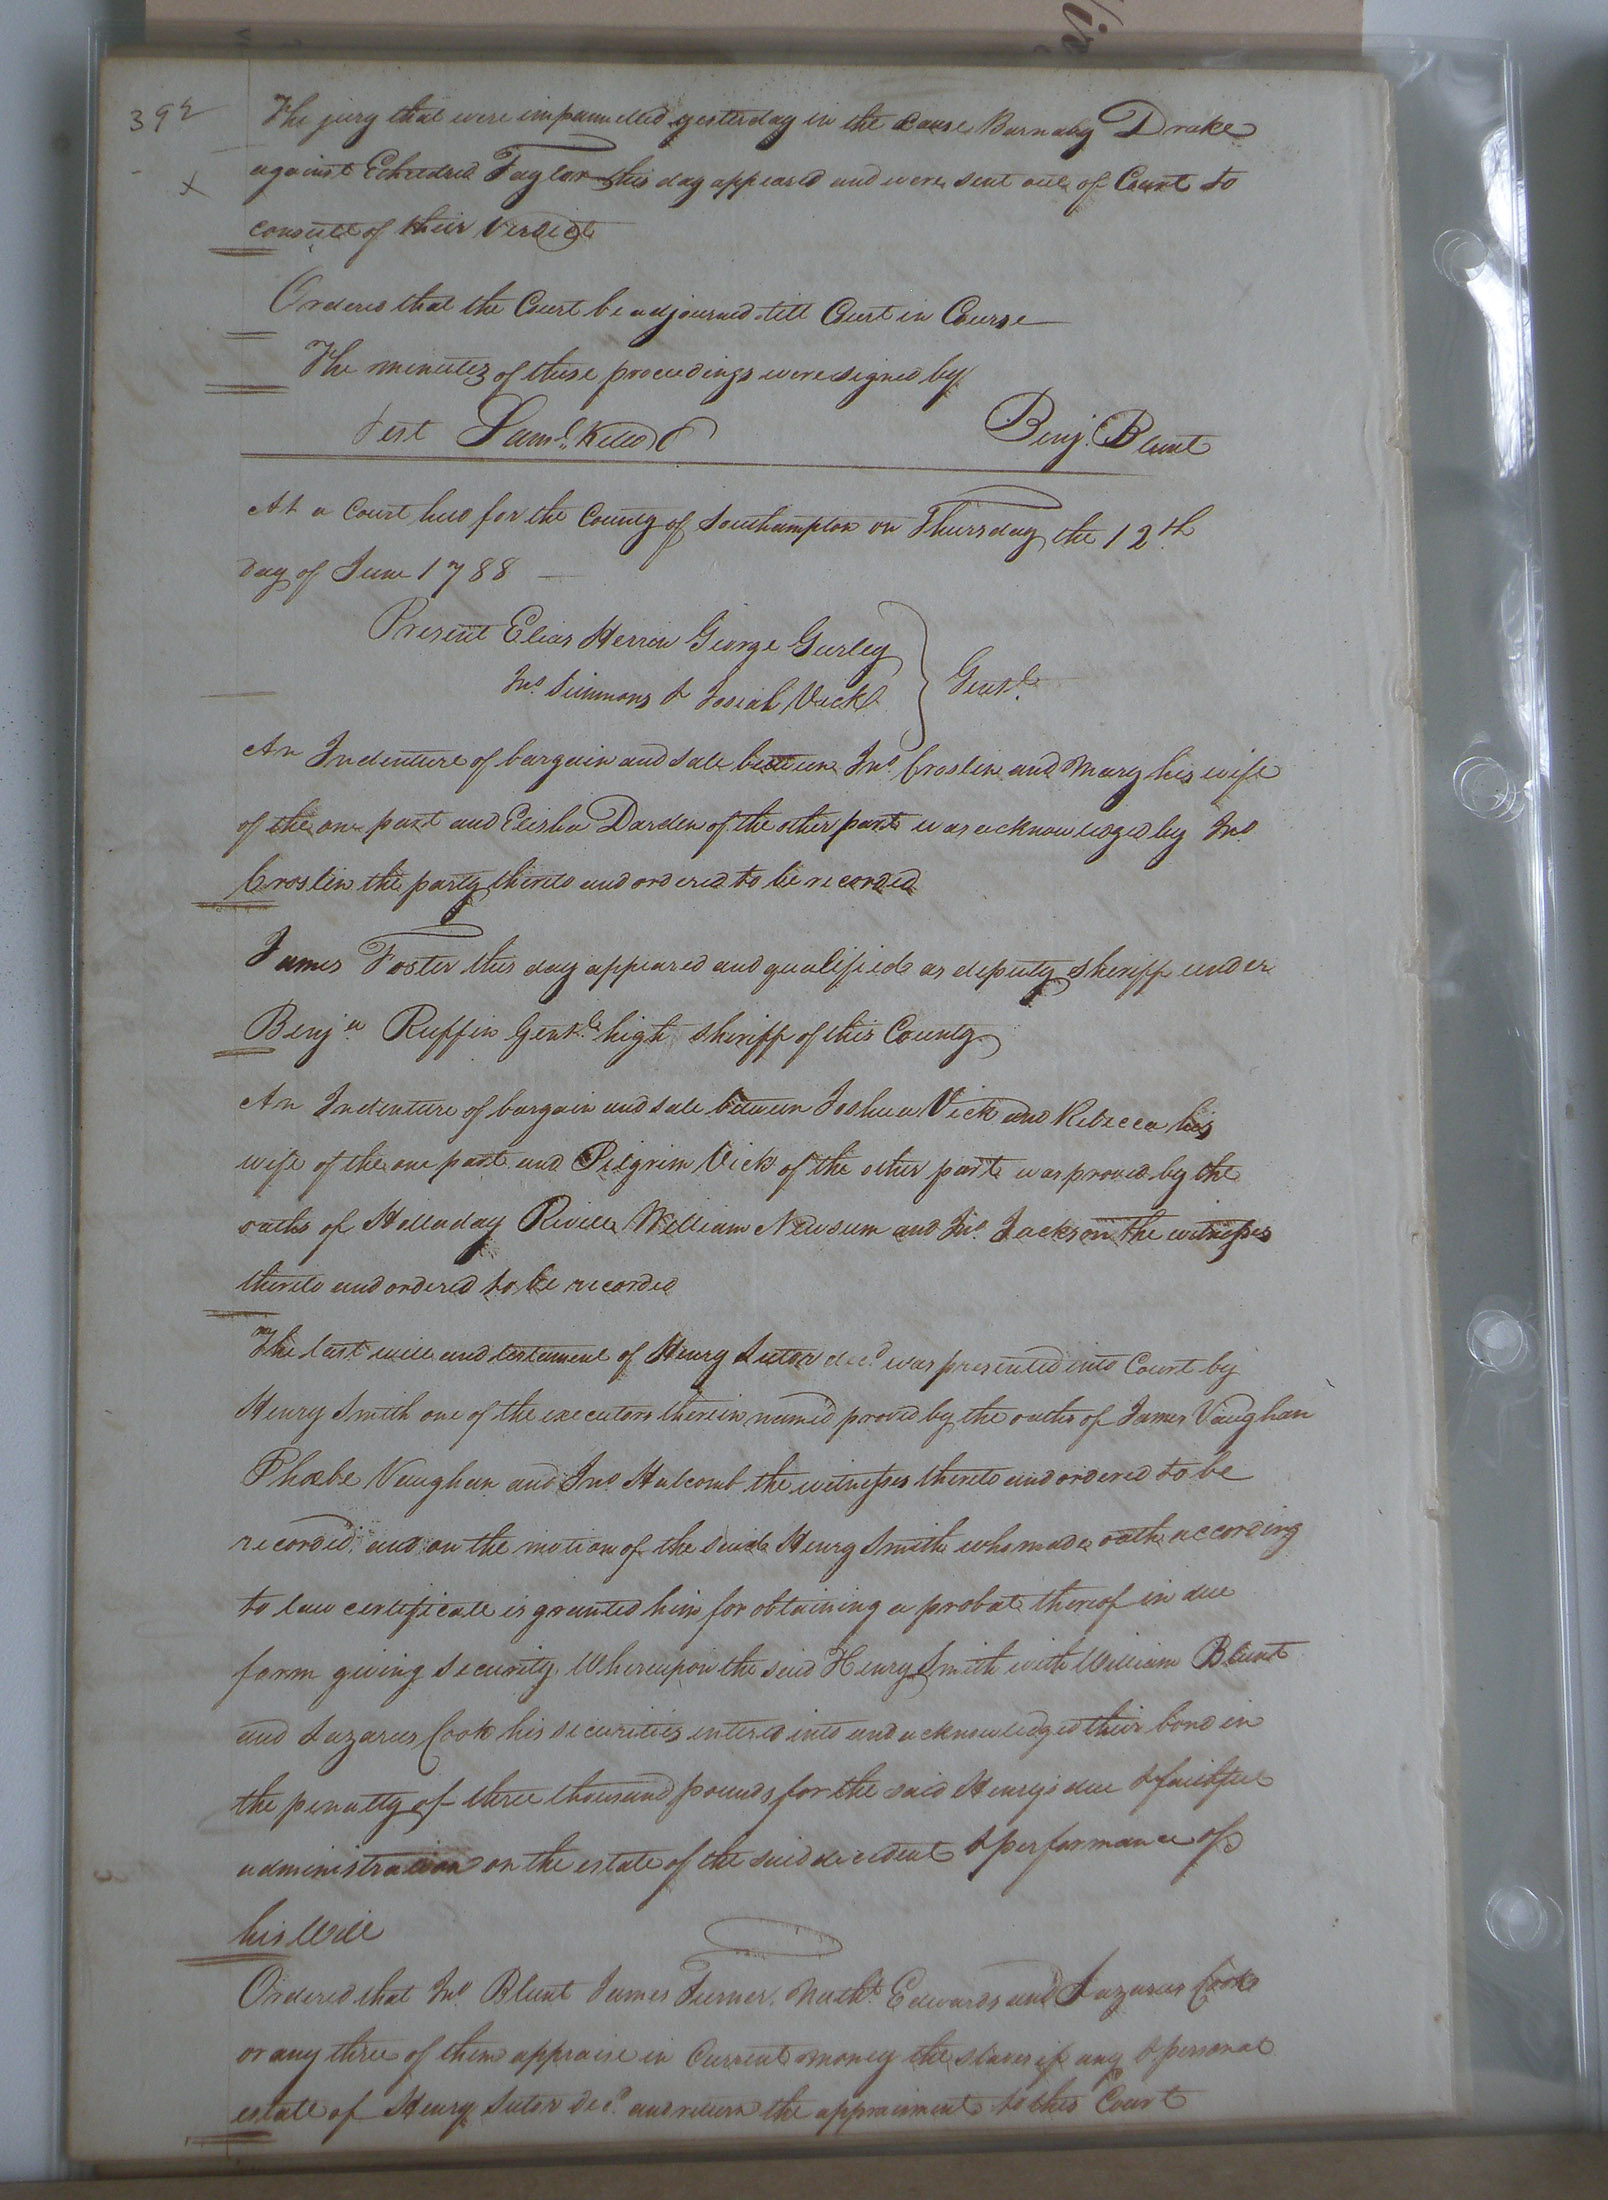 392
The jury that were impannelled yesterday in the cause Barnaby Drake
against Etheldred Taylor this day appeared and were sent out of Court to
x
consult of their Verdict
Ordered that the Court be adjourned till Court in Course
The minutes of these proceedings were signed by
Test Saml. Kello C Benj. Blunt
At a Court held for the County of Southampton on Thursday the 12th
day of June 1788
Present Elias Herrin George Gurley
Jno. Simmons & Josiah Vick Gentle.
An Indenture of bargain and sale between Jno. Croslin and Mary his wife
of the one part and Elisha Darden of the other part was acknowledged by Jno.
Croslin the party thereto and ordered to be recorded
James Foster this day appeared and qualified as deputy sheriff under
Benja. Ruffin Gentle. high sheriff of this County
An Indenture of bargain and sale between Joshua Vick and Rebecca his
wife of the one part and Pilgrim Vick of the other part was proved by the
oaths of Holladay Rivell William Newsum and Jno. Jackson the witnesses
thereto and ordered to be recorded
The last will and testament of Henry Sutor decd. was presented into Court by
Henry Smith one of the executors therein named proved by the oaths of James Vaughan
Phœbe Vaughan and Jno. Halcomb the witnesses thereto and ordered to be
recorded, and on the motion of the said Henry Smith who made oath according
to law certificate is granted him for obtaining a probat thereof in due
form giving security. Whereupon the said Henry Smith with William Blunt
and Lazarus Cook his securities entered into and acknowledged their bond in
the penalty of three thousand pounds for the said Henry's due & faithful
administration on the estate of the said decedent & performance of
his Will
Ordered that Jno. Blunt James Turner, Nathl. Edwards and Lazarus Cook
or any three of them appraise in Current money the slaves if any & personal
estate of Henry Sutor Decd. and return the appraisment to this Court